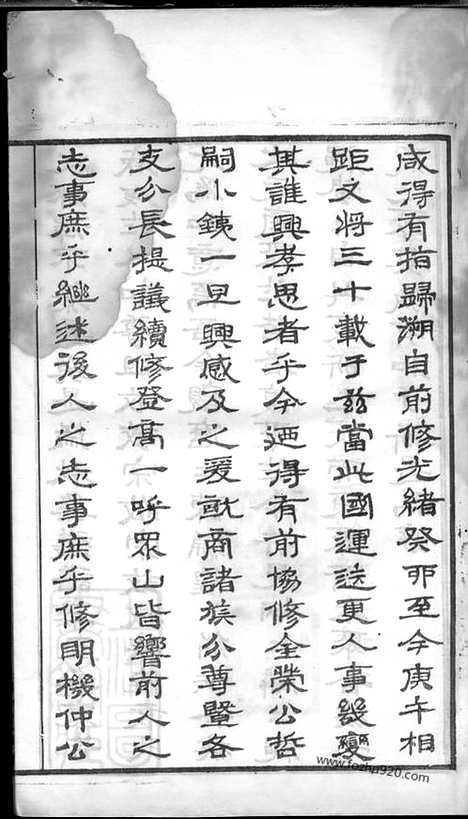 咸得有指歸溯自前修光緒癸卯至今庚午相
距又將三十載于茲當此國運迭更人事幾變
其誰興孝思者乎今迺得有前協修全榮公哲
嗣小銕一旦興感及之爰就商諸族分尊暨各
支分長提議續修登高一呼眾山皆響前人之
志事庶乎繼述後人之志事庶乎修明機仲公
www.fozhu920.com